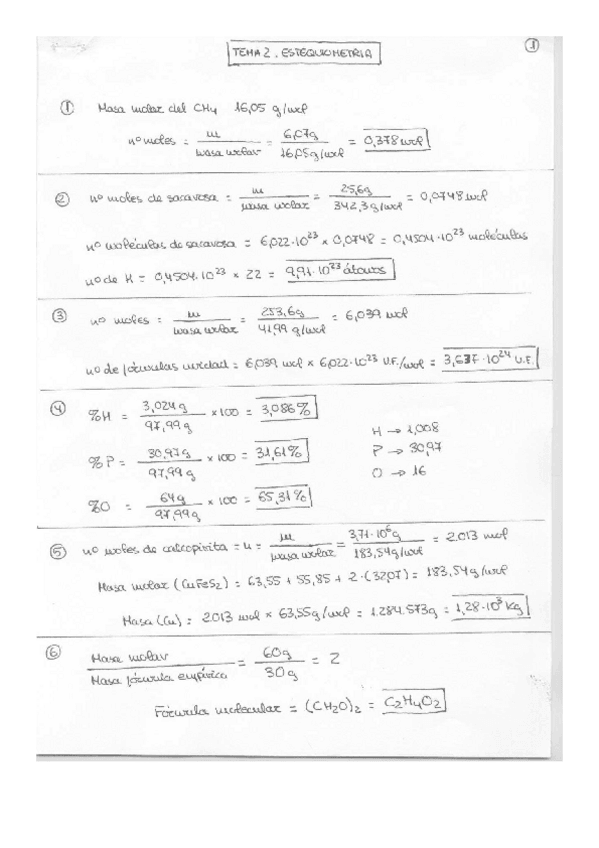 1
TEMA 2. ESTEQUIOMETRIA
① Masa molar del CH4 16,05 g/mol
nº moles = m / masa molar = 6,07g / 16,05 g/mol = 0,378 mol
② nº moles de sacarosa = m / masa molar = 25,6g / 342,3 g/mol = 0,0748 mol
nº moléculas de sacarosa = 6,022·10²³ × 0,0748 = 0,4504·10²³ moléculas
nº de H = 0,4504·10²³ × 22 = 9,91·10²³ átomos
③ nº moles = m / masa molar = 253,6g / 41,99 g/mol = 6,039 mol
nº de fórmulas unidad = 6,039 mol × 6,022·10²³ U.F./mol = 3,637·10²⁴ U.F.
④ %H = 3,024g / 97,99g × 100 = 3,086%
H → 1,008
%P = 30,97g / 97,99g × 100 = 31,61%
P → 30,97
O → 16
%O = 64g / 97,99g × 100 = 65,31%
⑤ nº moles de calcopirita = n = m / masa molar = 3,71·10⁶g / 183,54g/mol = 2.013 mol
Masa molar (CuFeS2) = 63,55 + 55,85 + 2·(32,07) = 183,54 g/mol
Masa (Cu) = 2.013 mol × 63,55 g/mol = 1.284.573g = 1,28·10³ Kg
⑥ Masa molar / Masa fórmula empírica = 60g / 30g = 2
Fórmula molecular = (CH2O)2 = C2H4O2